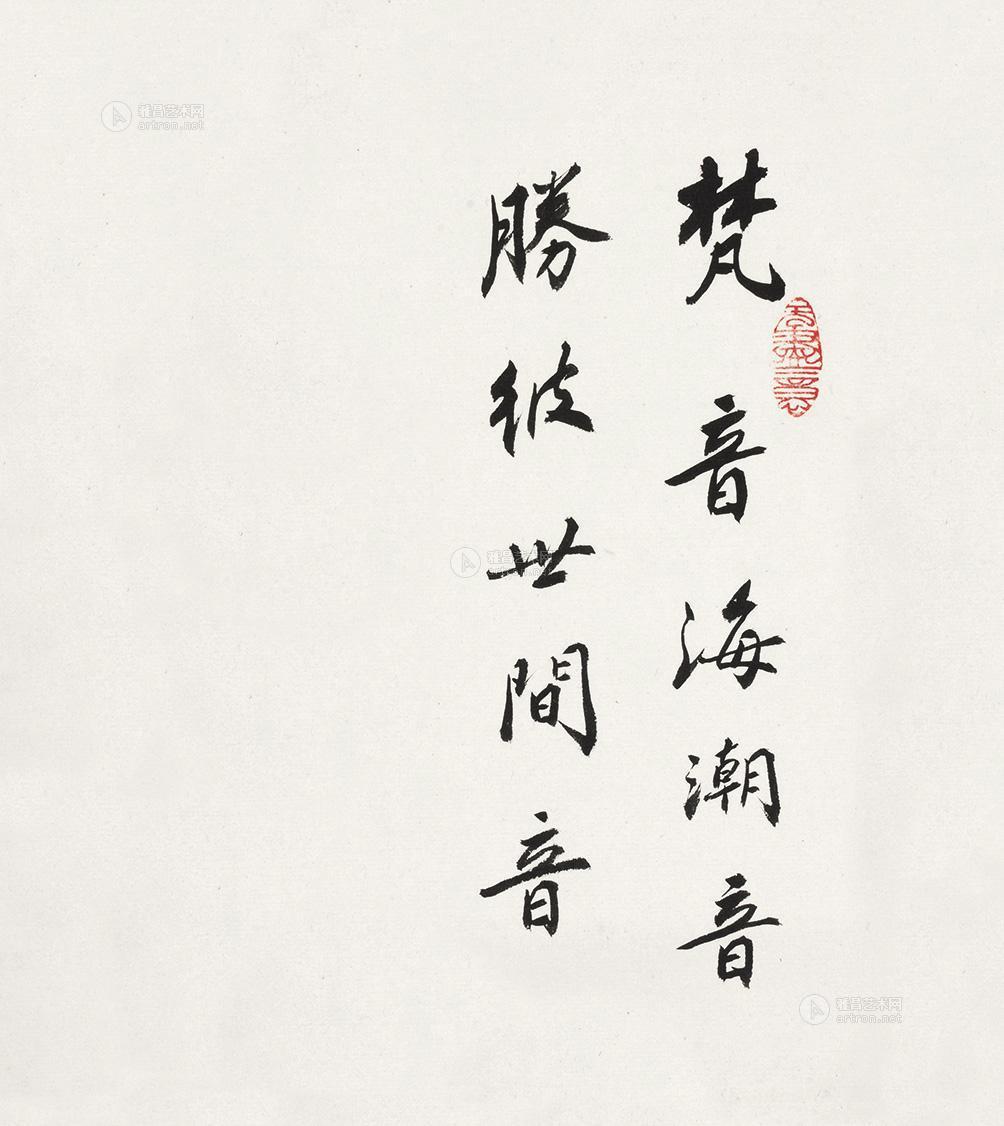 梵音海潮音
勝彼世間音
雅昌艺术网
artron.net
雅昌艺术网
artron.net
雅昌艺术网
artron.net